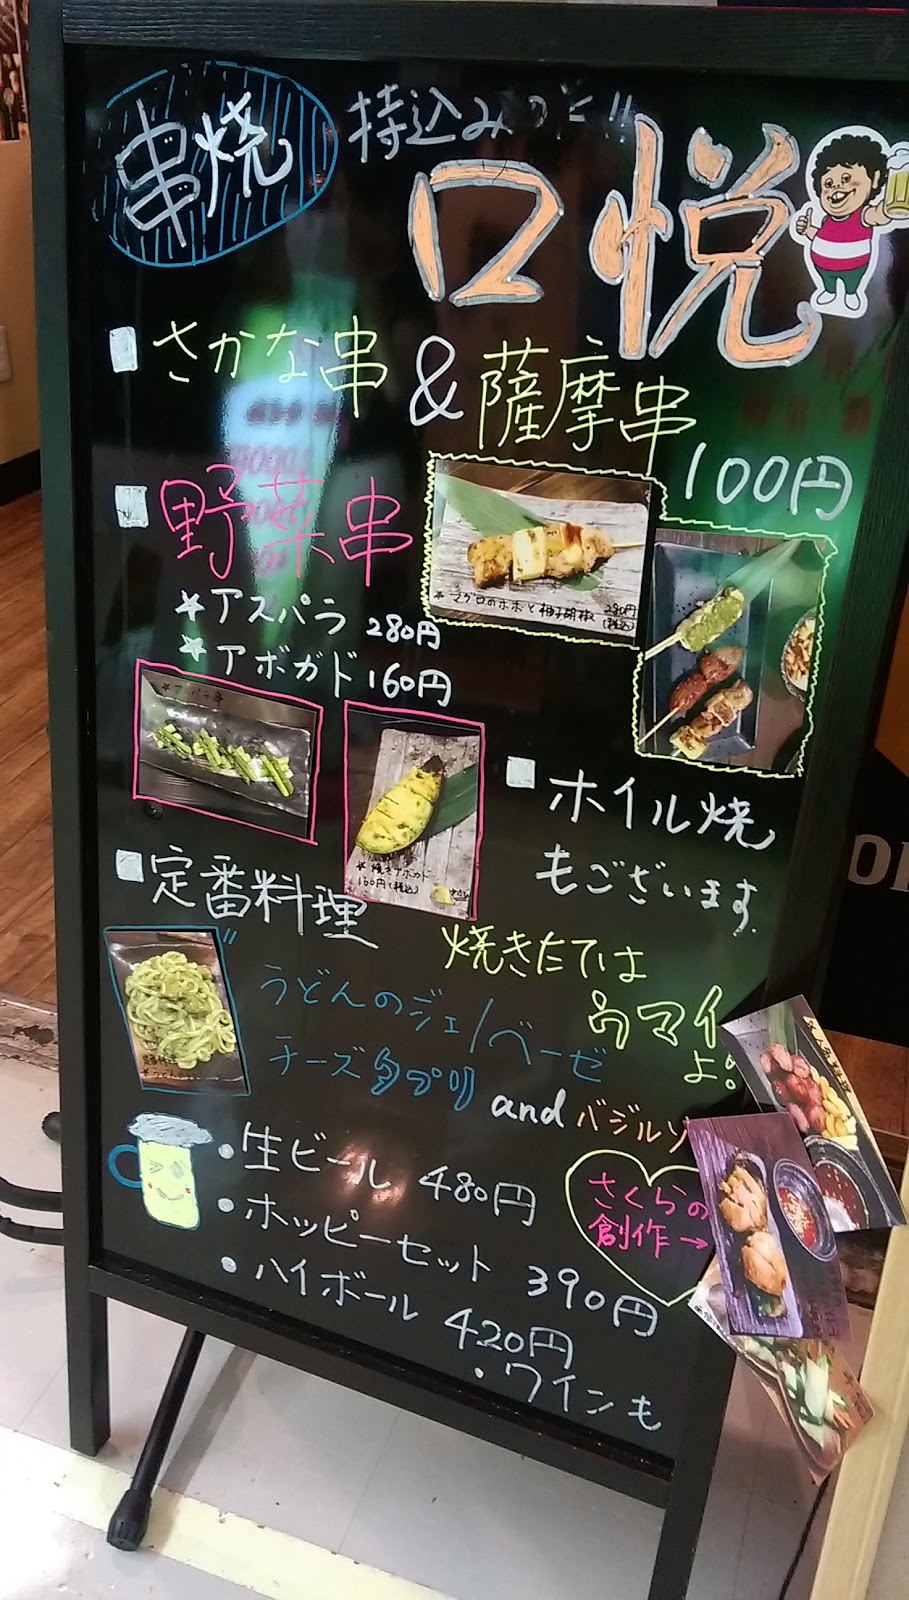 串焼
持込み
口悦
さかな串
&
薩摩串
100円
野菜串
☆アスパラ 280円
☆アボガド 160円
柚子胡椒 280円
(税込)
アスパラ串
焼きアボガド
160円(税込)
ホイル焼
もございます
定番料理
焼きたては
ウマイ
よ!
うどんのジェノベーゼ
チーズタプリ
and バジルソ
・生ビール 480円
・ホッピーセット 390円
・ハイボール 420円
・ワインも
さくらの
創作→